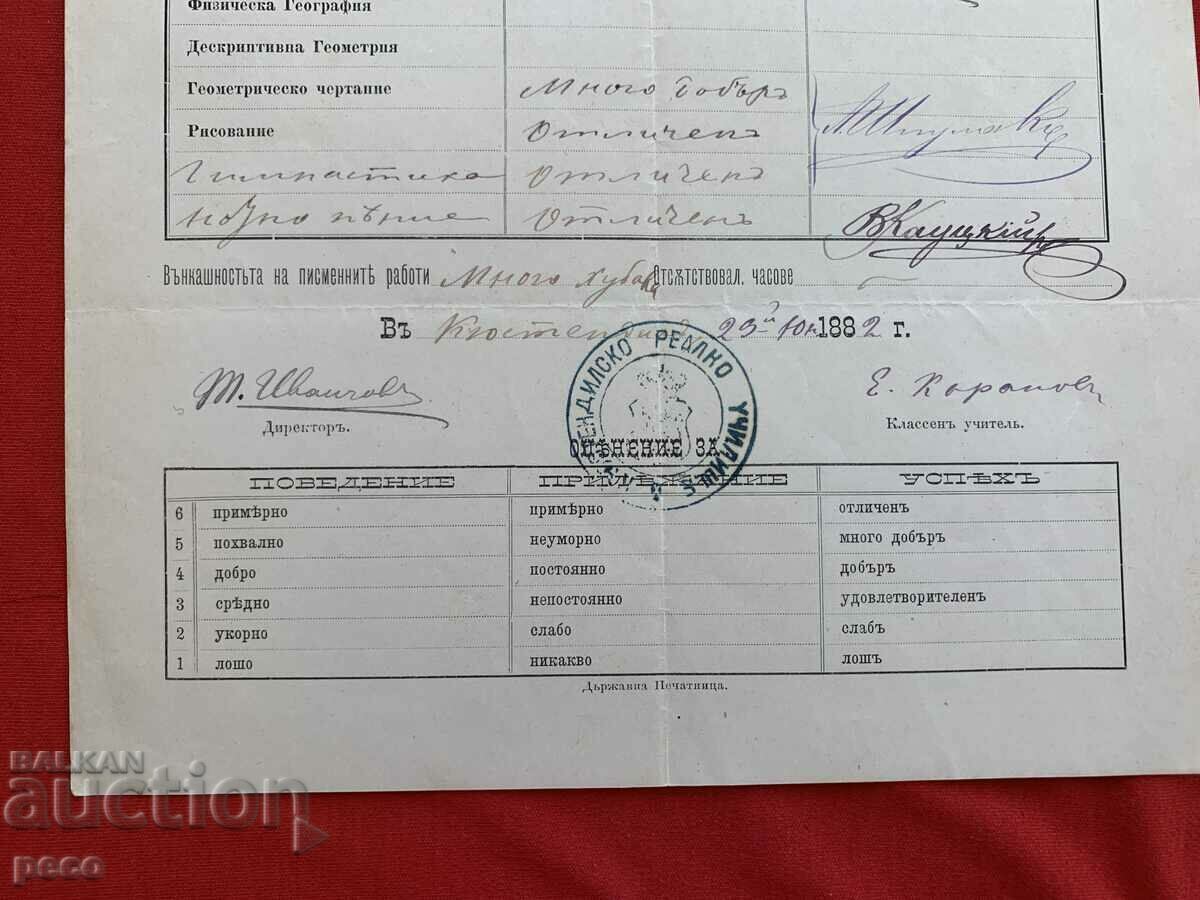 Физическа География
Дескриптивна Геометрия
Геометрическо чертание Много добъръ
Рисование Отличенъ
Гимнастика Отличенъ
Нотно пѣние Отличенъ В Кауцкій
Вънкашностьта на писменнитѣ работи Много хубава Отсѫтствовал. часове
Въ Кюстендилъ 29й Юн 1882 г.
КЮСТЕНДИЛСКО РЕАЛНО УЧИЛИЩЕ
Т. Иванчовъ Е. Карановъ
Директоръ. Классенъ учитель.
ОЦѢНЕНИЕ ЗА
ПОВЕДЕНИЕ ПРИЛѢЖАНИЕ УСПѢХЪ
6 примѣрно примѣрно отличенъ
5 похвално неуморно много добъръ
4 добро постоянно добъръ
3 срѣдно непостоянно удовлетворителенъ
2 укорно слабо слабъ
1 лошо никакво лошъ
Държавна Печатница.
BALKAN
auction
peco